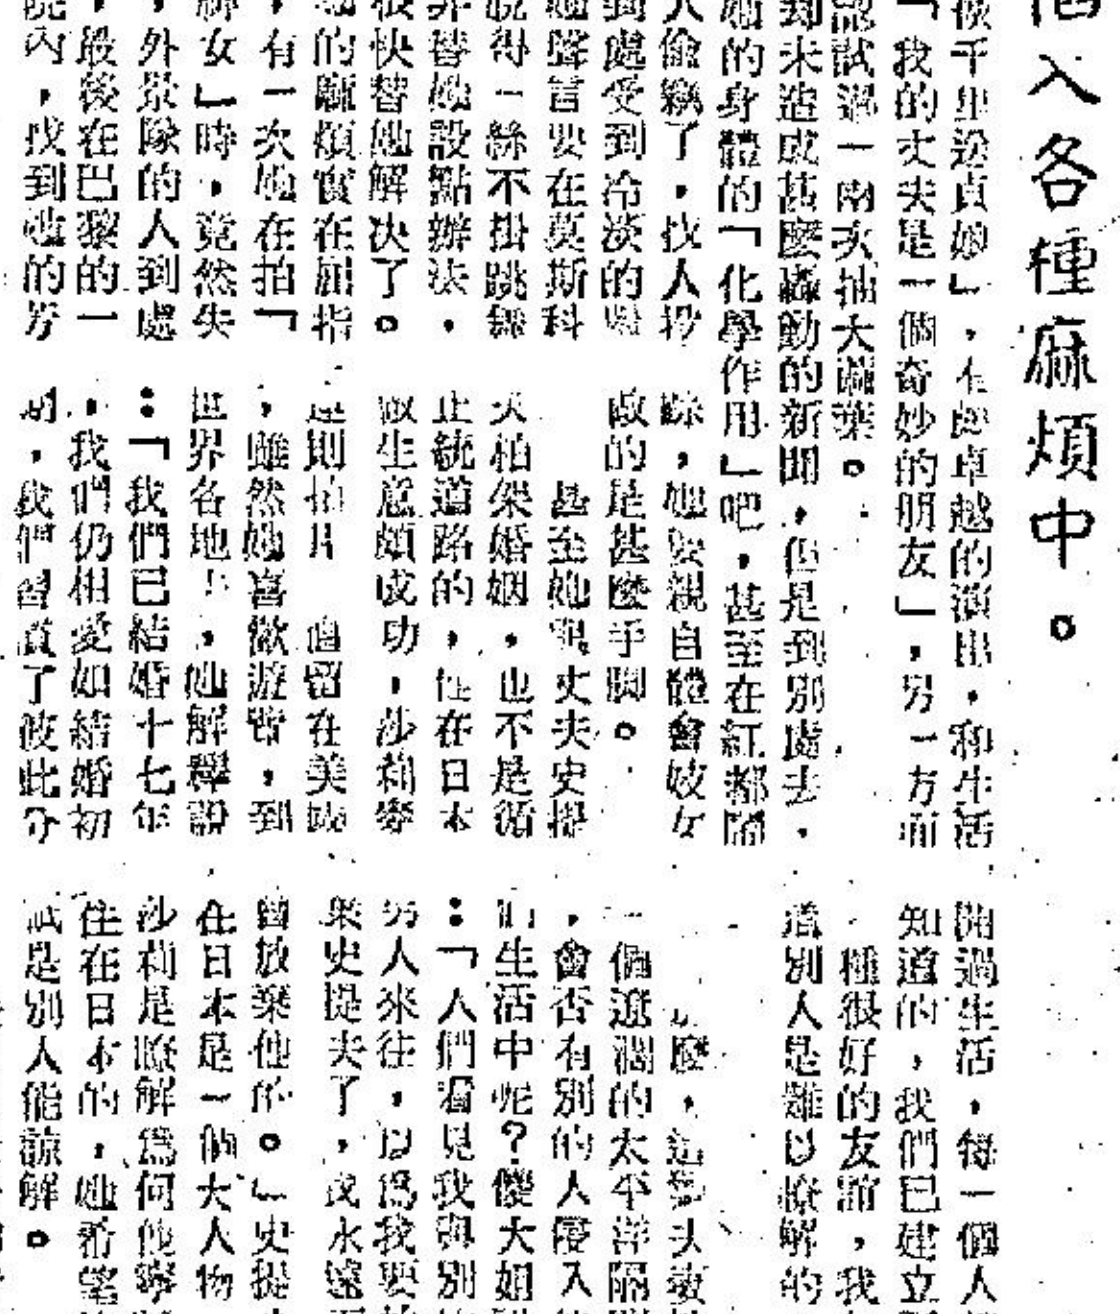 入各種麻煩中。
千里送貞娘」，有卓越的演出，和生活
「我的丈夫是一個奇妙的朋友」，另一方面
認試過一兩次抽大麻葉。
到未造成甚麼轟動的新聞，但是到別處去，
她的身體的「化學作用」吧，甚至在紅都
人偷竊了，找人抄
到處受到冷淡的
她聲言要在莫斯科
脫得一絲不掛跳舞
非替她設點辦法，
很快替她解決了。
的麻煩實在屈指
，有一次她在拍「
女」時，竟然失
，外景隊的人到處
，最後在巴黎的一
院內，找到她的芳
踪，她要親自體會妓女
做的是甚麼手脚。
甚至她與丈夫史提
夫柏架婚姻，也不是循
正統道路的，住在日本
做生意頗成功，沙莉麥
連則拍片 留在美國
，雖然她喜歡遊歷，到
世界各地去，她解釋說
：「我們已結婚十七年
，我們仍相愛如結婚初
期，我們習慣了彼此分
開過生活，每一個人
知道的，我們已建立
種很好的友誼，我
道別人是難以瞭解的
麼，這對夫妻
一個遼濶的太平洋隔
，會否有別的人侵入
們生活中呢？傻大姐
：「人們看見我與別
男人來往，以爲我要
棄史提夫了，我永遠
會放棄他的。」史提
在日本是一個大人物
沙莉是瞭解爲何他寧
住在日本的，她希望
祗是別人能諒解。